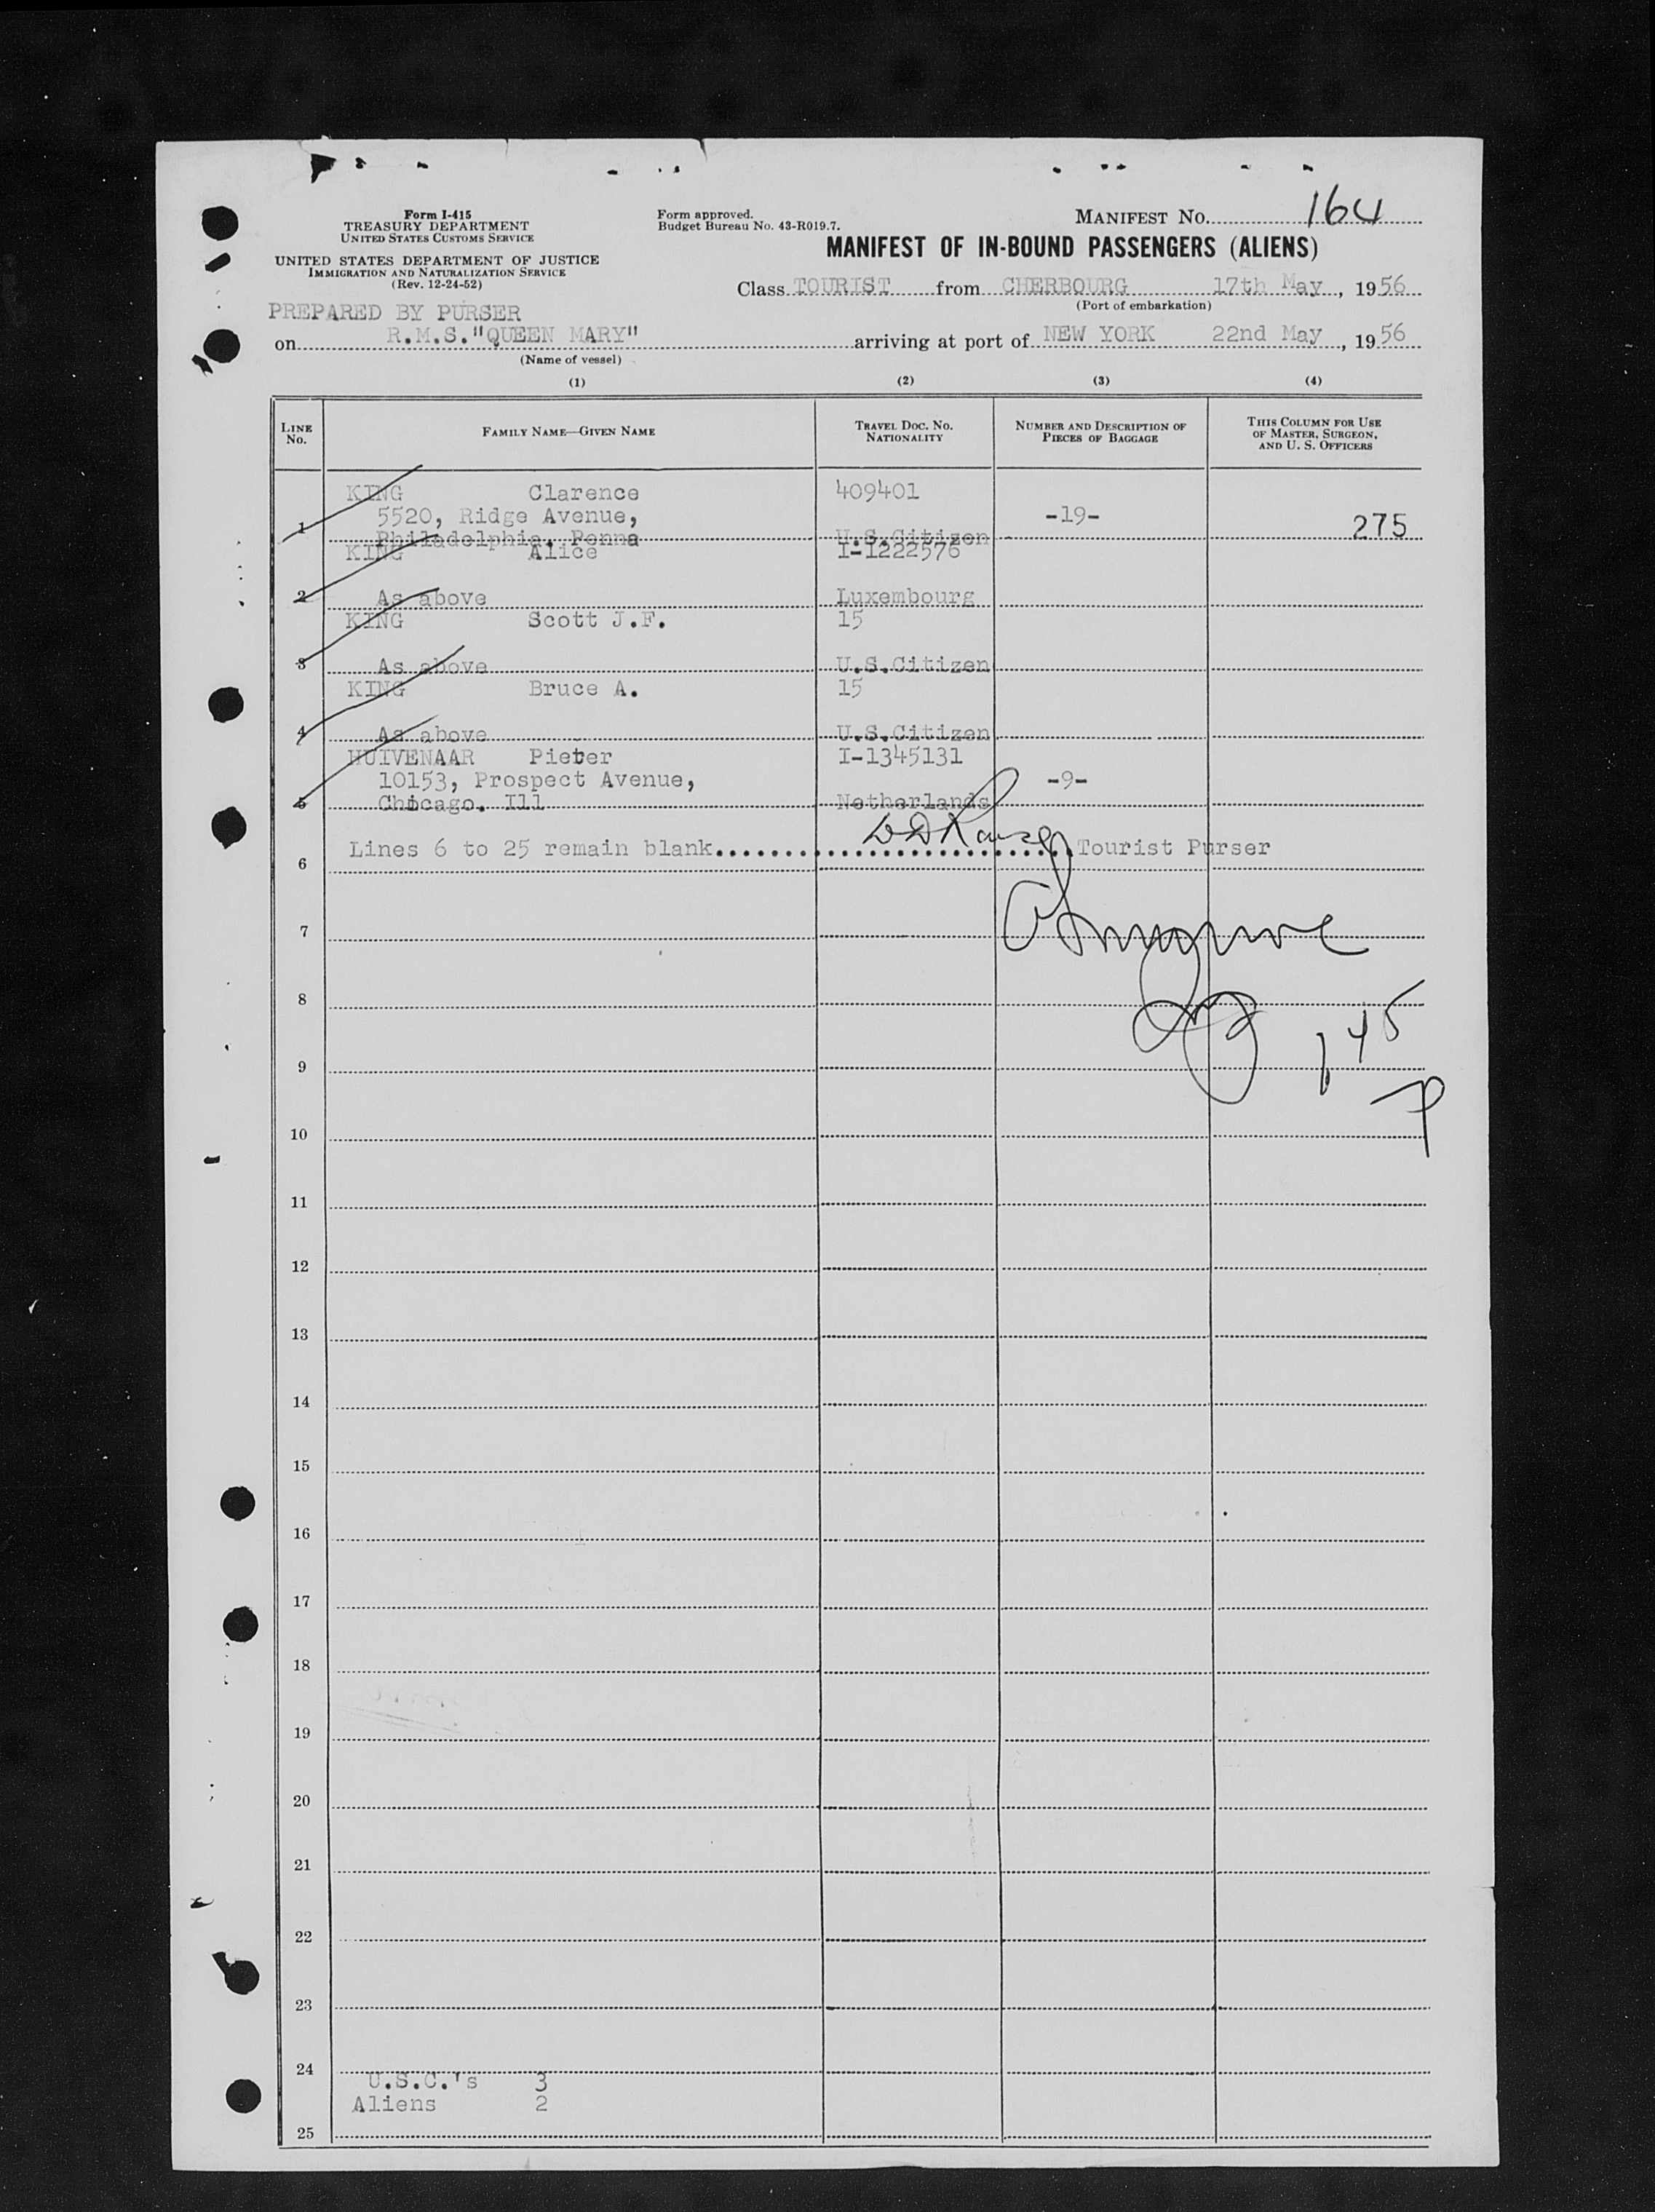 Form I-415
TREASURY DEPARTMENT
UNITED STATES CUSTOMS SERVICE
UNITED STATES DEPARTMENT OF JUSTICE
IMMIGRATION AND NATURALIZATION SERVICE
(Rev. 12-24-52)
Form approved.
Budget Bureau No. 43-R019.7.
MANIFEST NO. 164
MANIFEST OF IN-BOUND PASSENGERS (ALIENS)
Class TOURIST from CHERBOURG 17th May, 1956
(Port of embarkation)
PREPARED BY PURSER
on R.M.S."QUEEN MARY" arriving at port of NEW YORK 22nd May, 1956
(Name of vessel)
(1) (2) (3) (4)
LINE No. FAMILY NAME—GIVEN NAME TRAVEL DOC. NO. NATIONALITY NUMBER AND DESCRIPTION OF PIECES OF BAGGAGE THIS COLUMN FOR USE OF MASTER, SURGEON, AND U. S. OFFICERS
KING Clarence 409401
5520, Ridge Avenue, -19-
1 Philadelphia, Penna U.S.Citizen 275
KING Alice I-1222576
2 As above Luxembourg
KING Scott J.F. 15
3 As above U.S.Citizen
KING Bruce A. 15
4 As above U.S.Citizen
HUIVENAAR Pieter I-1345131
10153, Prospect Avenue, -9-
5 Chicago. Ill Netherlands
6 Lines 6 to 25 remain blank. Tourist Purser
7
8
145
9
P
10
11
12
13
14
15
16
17
18
19
20
21
22
23
24
U.S.C.'s 3
Aliens 2
25